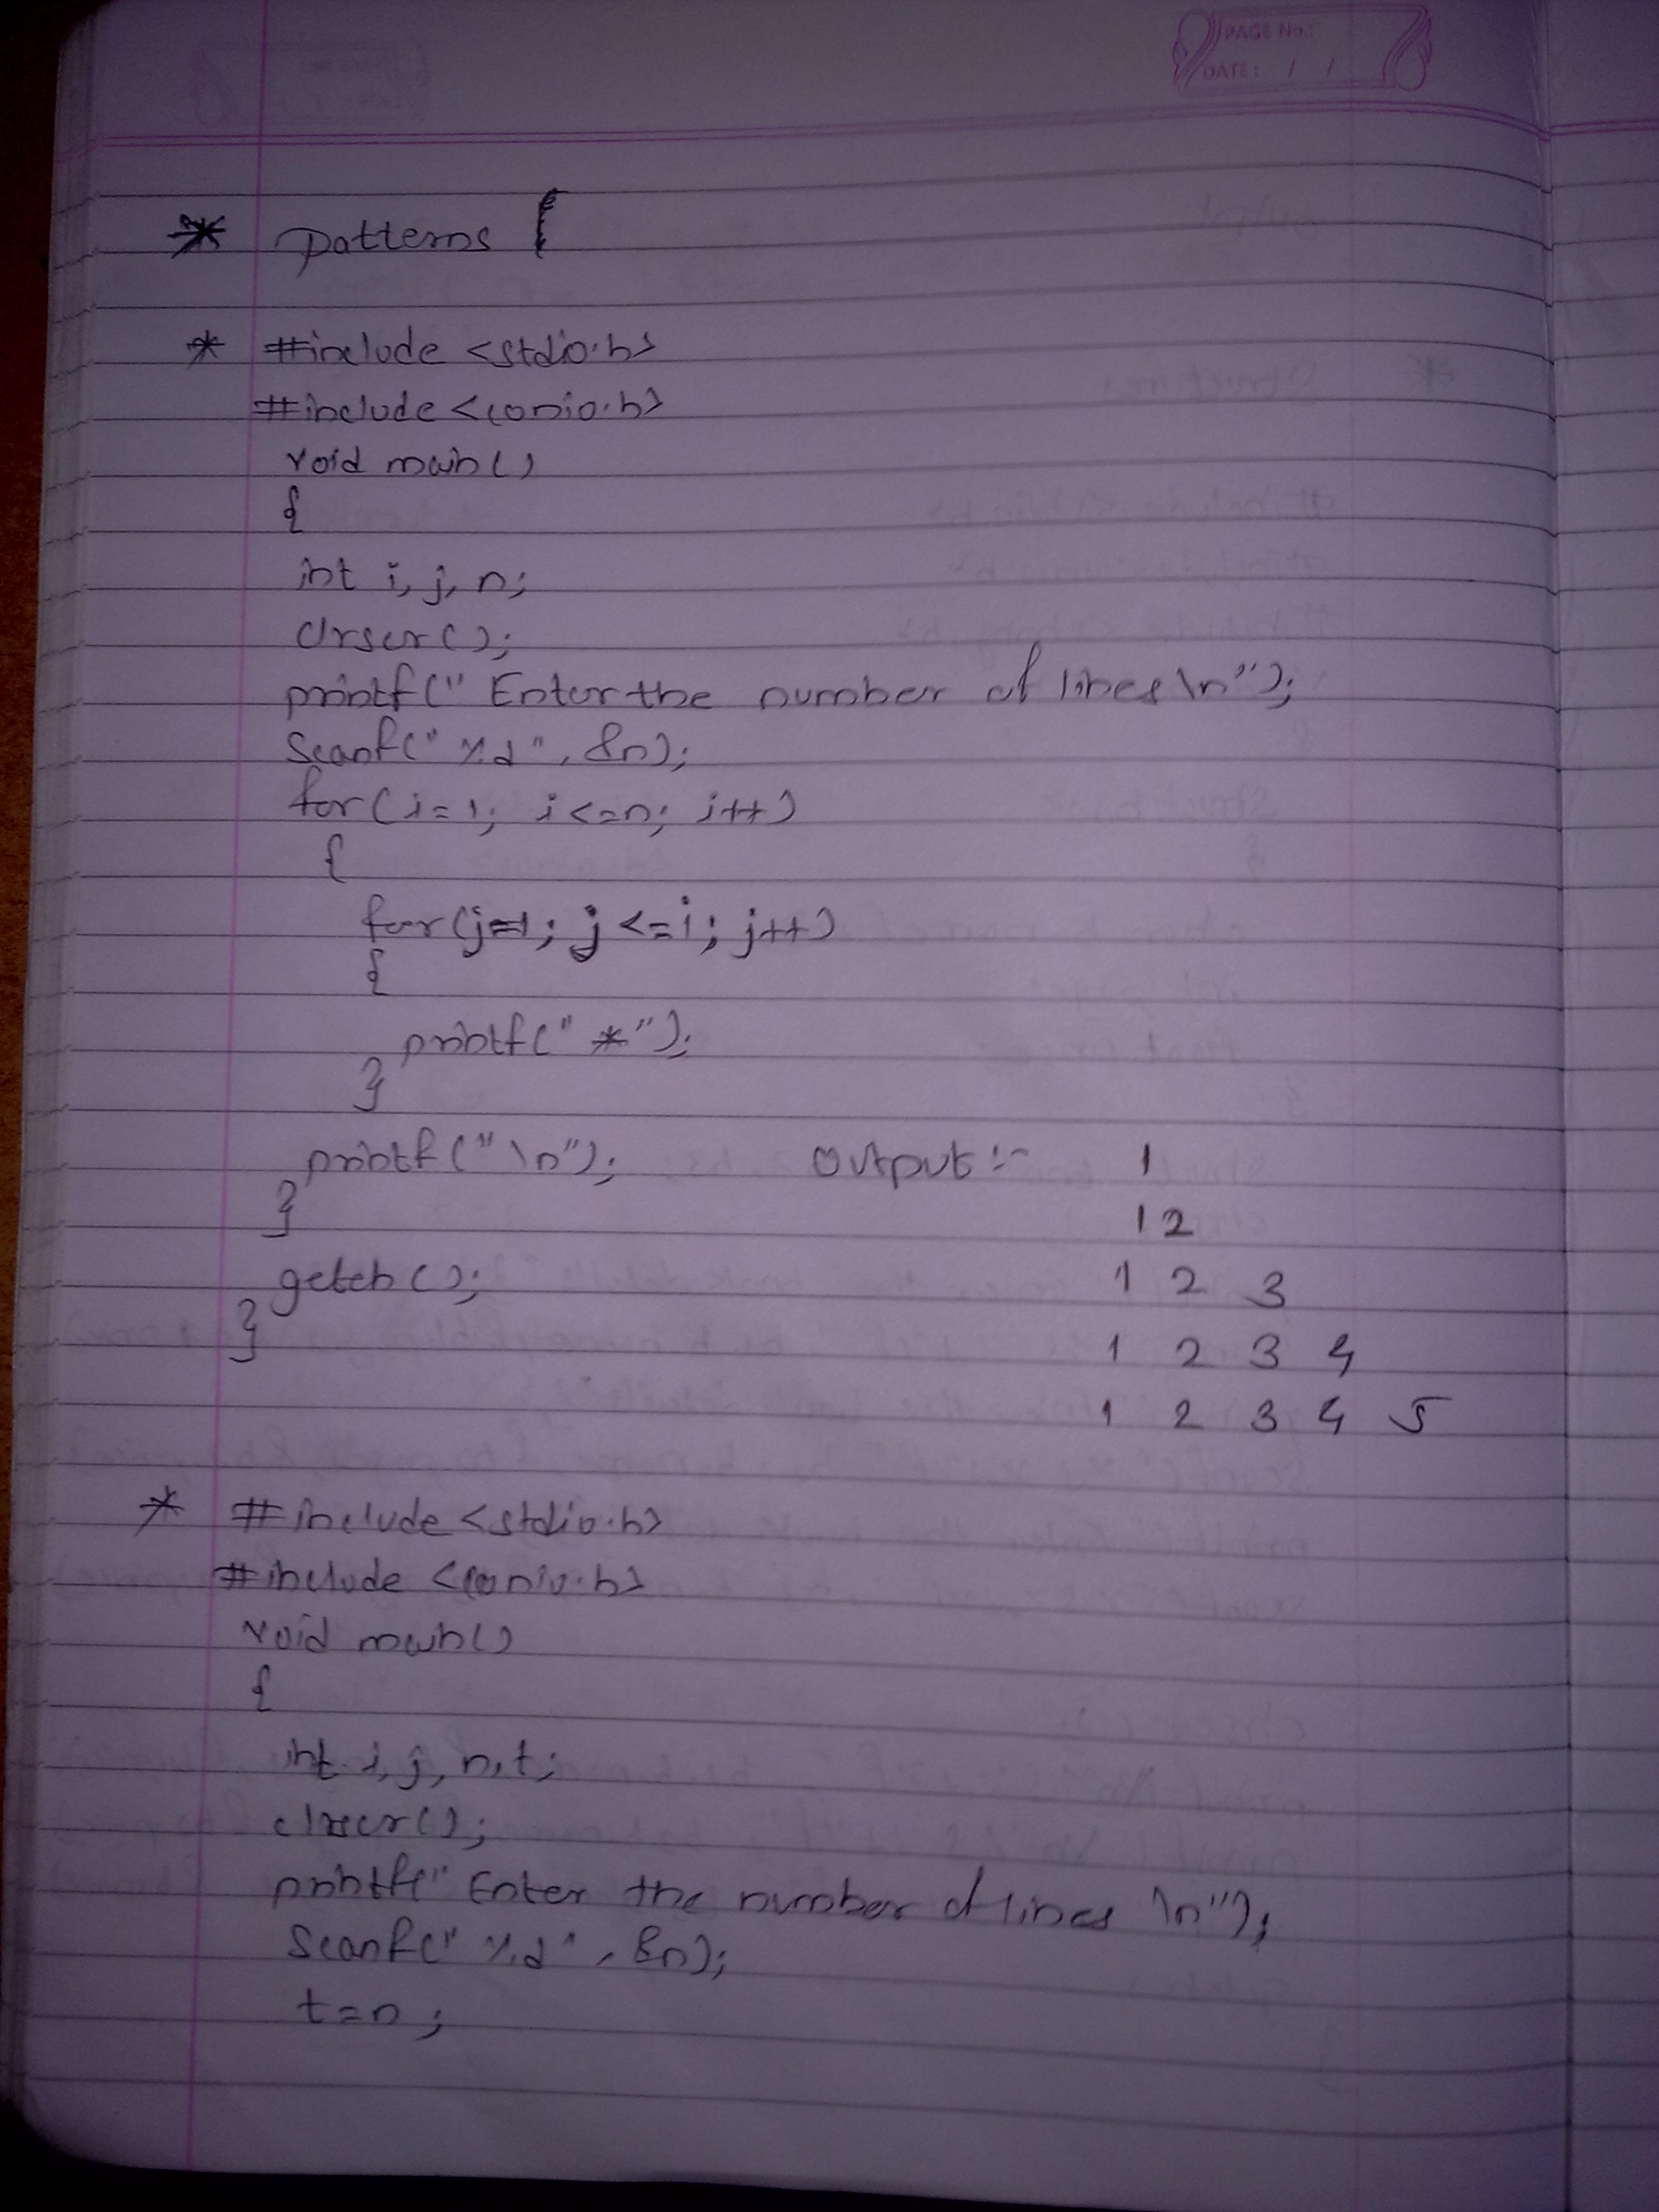 PAGE No.:
DATE: / /
* patterns
* #include <stdio.h>
#include <conio.h>
void main()
{
int i, j, n;
clrscr();
printf(" Enter the number of lines \n");
Scanf(" %d", &n);
for(i=1; i<=n; i++)
{
for(j=1; j<=i; j++)
{
printf(" *");
}
printf("\n"); Output :- 1
} 1 2
getch(); 1 2 3
} 1 2 3 4
1 2 3 4 5
* #include <stdio.h>
#include <conio.h>
void main()
{
int i, j, n, t;
clrscr();
printf(" Enter the number of lines \n");
Scanf(" %d", &n);
t=n;